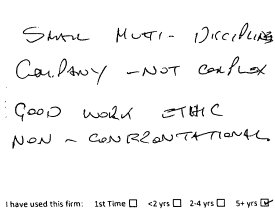 SMALL MULTI-DISCIPLINE
COMPANY - NOT COMPLEX
GOOD WORK ETHIC
NON - CONFRONTATIONAL
I have used this firm: 1st Time ☐ <2 yrs ☐ 2-4 yrs ☐ 5+ yrs ☑